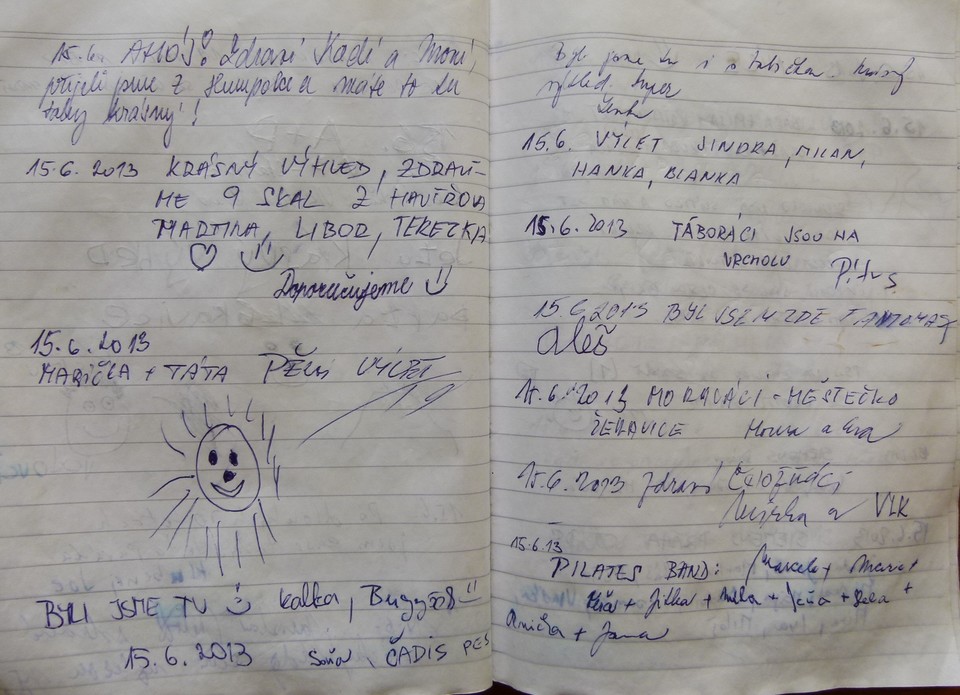 15.6. AHOJ! Zdraví Kadí a Moni,
přijeli jsme z Humpolce a máte to tu
taky krásný!
15.6. 2013 KRÁSNÝ VÝHLED, ZDRAVÍ-
ME 9 SKAL Z HAVÍŘOVA
MARTINA, LIBOR, TEREZKA
Doporučujeme
15.6.2013
MARIČKA + TÁTA PĚKNÝ VÝLET
BYLI JSME TU Kalka,
15.6.2013 Soňa, ČADIS PES
Byli jsme tu i s
výhled. Super
Lenka
15.6. VÝLET JINDRA, MILAN,
HANKA, BLANKA
15.6.2013 TÁBORÁCI JSOU NA
VRCHOLU
15.6.2013 BYL JSEM ZDE
Aleš
15.6.2013 MORAVÁCI - MĚSTEČKO
ŽERAVICE a Eva
15.6.2013 zdraví
a VLK
15.6.13
PILATES BAND: Marcela + Marcel
+ Jitka + + + +
Anička + Jana